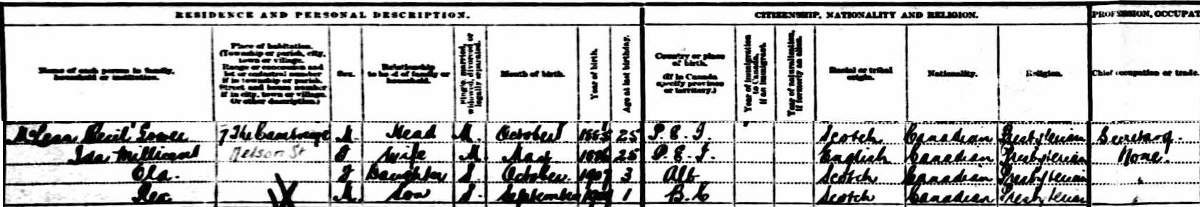 RESIDENCE AND PERSONAL DESCRIPTION. CITIZENSHIP, NATIONALITY AND RELIGION. PROFESSION, OCCUPAT
Name of each person in family, household or institution.
Place of habitation. (Township or parish, city, town or village. Range or concession and lot or cadastral number if in township or parish. Street and house number if in city, town or village. Or other description.)
Sex.
Relationship to head of family or household.
Single, married, widowed, divorced or legally separated.
Month of birth.
Year of birth.
Age at last birthday.
Country or place of birth. (If in Canada specify province or territory.)
Year of immigration to Canada, if an immigrant.
Year of naturalization, if formerly an alien.
Racial or tribal origin.
Nationality.
Religion.
Chief occupation or trade.
McLean Cecil Gower 7 The Cambridge M Head M. October 25 P.E.I. Scotch Canadian Presbyterian Secretary
Ida Millicent Nelson St F Wife M May 1886 25 P.E.I. English Canadian Presbyterian None.
Ola. F Daughter S. October 1907 3 Alt Scotch Canadian Presbyterian "
Rex. M. Son S. September 1 B.C Scotch Canadian Presbyterian "